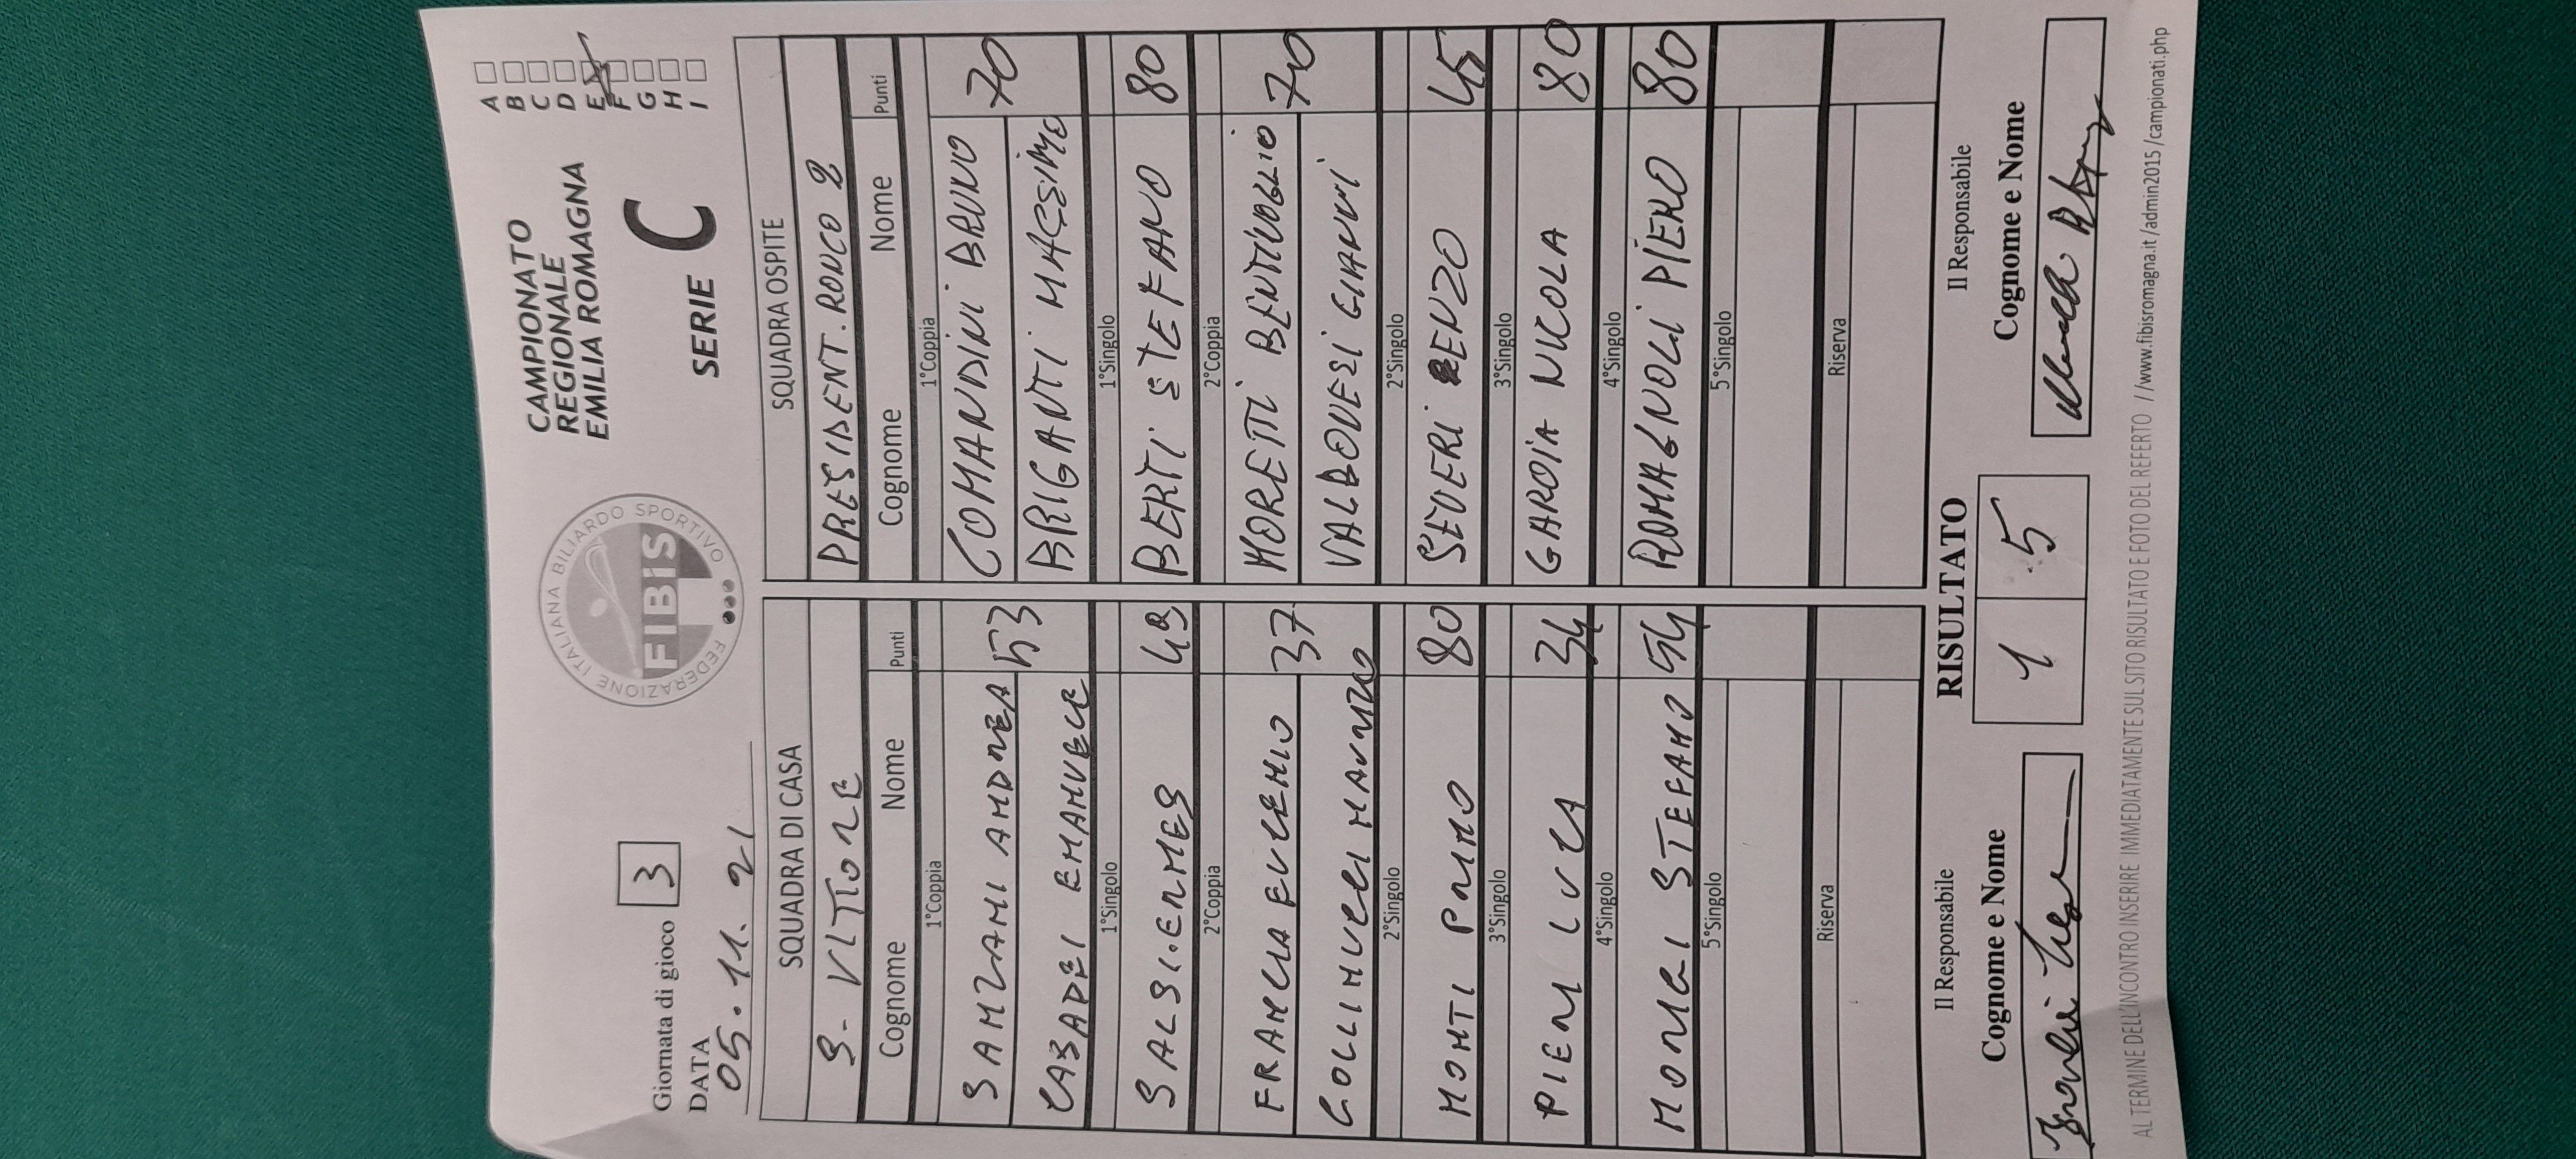 FEDERAZIONE ITALIANA BILIARDO SPORTIVO
FIBiS
CAMPIONATO
REGIONALE
EMILIA ROMAGNA
SERIE C
A
B
C
D
E
F
G
H
I
Giornata di gioco 3
DATA
05.11.21
SQUADRA DI CASA
S. VITTORE
Cognome Nome Punti
1°Coppia
SANZANI ANDREA 53
CASADEI EMANUELE
1°Singolo
SALSI ERMES 49
2°Coppia
FRANCIA EUGENIO 37
COLLINUCCI MAURIZIO
2°Singolo
MONTI PRIMO 80
3°Singolo
PIERI LUCA 34
4°Singolo
MONGI STEFANO 54
5°Singolo
Riserva
SQUADRA OSPITE
PRESIDENT. RONCO 2
Cognome Nome Punti
1°Coppia
COMANDINI BRUNO 70
BRIGANTI MASSIMO
1°Singolo
BERTI STEFANO 80
2°Coppia
MORETTI BENTIVOGLIO 70
VALBONESI GIANNI
2°Singolo
SEVERI RENZO 45
3°Singolo
GARDIA NICOLA 80
4°Singolo
ROMAGNOLI PIERO 80
5°Singolo
Riserva
Il Responsabile
Cognome e Nome
RISULTATO
1 5
Il Responsabile
Cognome e Nome
AL TERMINE DELL'INCONTRO INSERIRE IMMEDIATAMENTE SUL SITO RISULTATO E FOTO DEL REFERTO //www.fibisromagna.it/admin2015/campionati.php